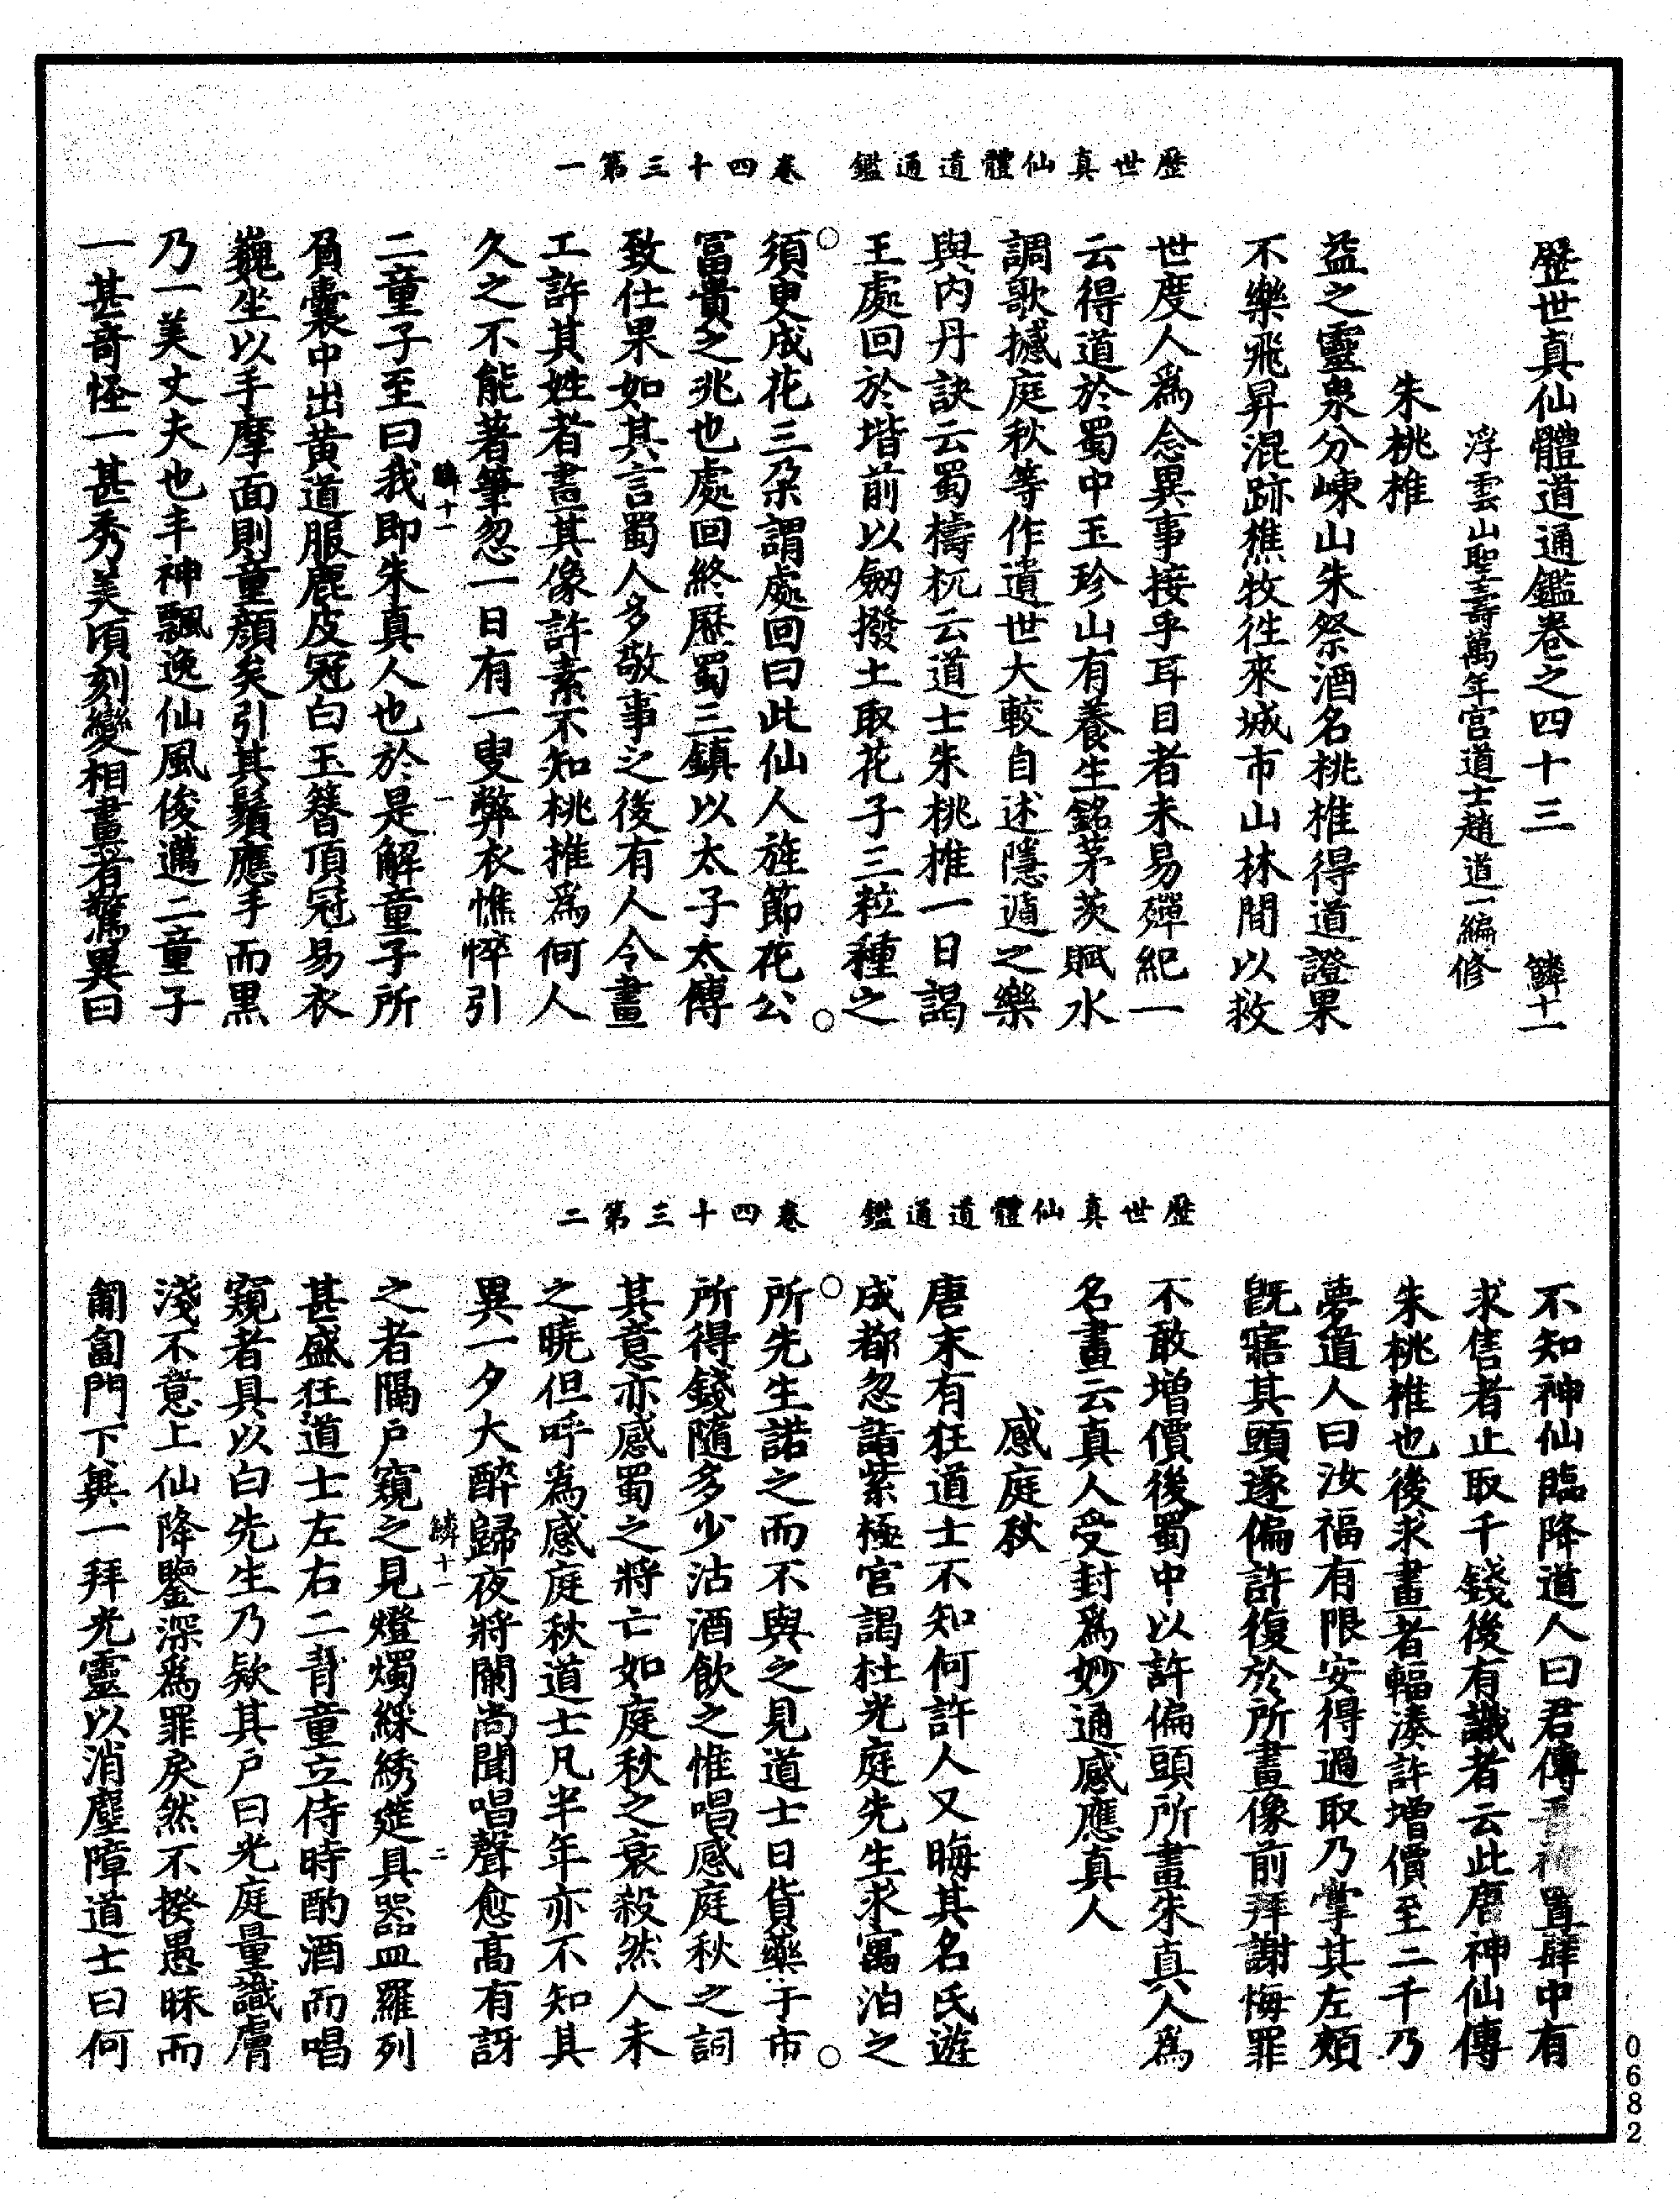 歷世真仙體道通鑑　卷四十三第一
歷世真仙體道通鑑卷之四十三　鱗十一
浮雲山聖壽萬年宮道士趙道一編修
朱桃椎
益之靈泉分崠山朱祭酒名桃椎得道證果
不樂飛昇混跡樵牧徃來城市山林間以救
世度人爲念異事接乎耳目者未易殫紀一
云得道於蜀中玉珍山有養生銘茅茨賦水
調歌撼庭秋等作遺世大較自述隱遁之樂
與內丹訣云蜀檮杌云道士朱桃椎一日謁
王處回於堦前以劒撥土取花子三粒種之
須臾成花三朶謂處回曰此仙人旌節花公
富貴之兆也處回終歷蜀三鎮以太子太傅
致仕果如其言蜀人多敬事之後有人令畫
工許其姓者畫其像許素不知桃椎爲何人
久之不能著筆忽一日有一叟弊衣憔悴引
鱗十一　一
二童子至曰我即朱真人也於是解童子所
負囊中出黃道服鹿皮冠白玉簪頂冠易衣
巍坐以手摩面則童顏矣引其鬚應手而黑
乃一美丈夫也丰神飄逸仙風俊邁二童子
一甚奇怪一甚秀美頃刻變相畫者驚異曰
歷世真仙體道通鑑　卷四十三第二
不知神仙臨降道人曰君傳置肆中有
求售者止取千錢後有識者云此唐神仙傳
朱桃椎也後求畫者輻湊許增價至二千乃
夢道人曰汝福有限安得過取乃掌其左頰
旣寤其頭遂偏許復於所畫像前拜謝悔罪
不敢增價後蜀中以許偏頭所畫朱真人爲
名畫云真人受封爲妙通感應真人
感庭秋
唐末有狂道士不知何許人又晦其名氏遊
成都忽詣紫極宮謁杜光庭先生求寓泊之
所先生諾之而不與之見道士日貨藥于市
所得錢隨多少沽酒飲之惟唱感庭秋之詞
其意亦感蜀之將亡如庭秋之衰殺然人未
之曉但呼爲感庭秋道士凡半年亦不知其
異一夕大醉歸夜將闌尚聞唱聲愈高有訝
鱗十一　二
之者隔戶窺之見燈燭綵綉筵具器皿羅列
甚盛狂道士左右二青童立侍時酌酒而唱
窺者具以白先生乃欵其戶曰光庭量識膚
淺不意上仙降鑒深爲罪戾然不揆愚昧而
匍匐門下兾一拜光靈以消塵障道士曰何
0682